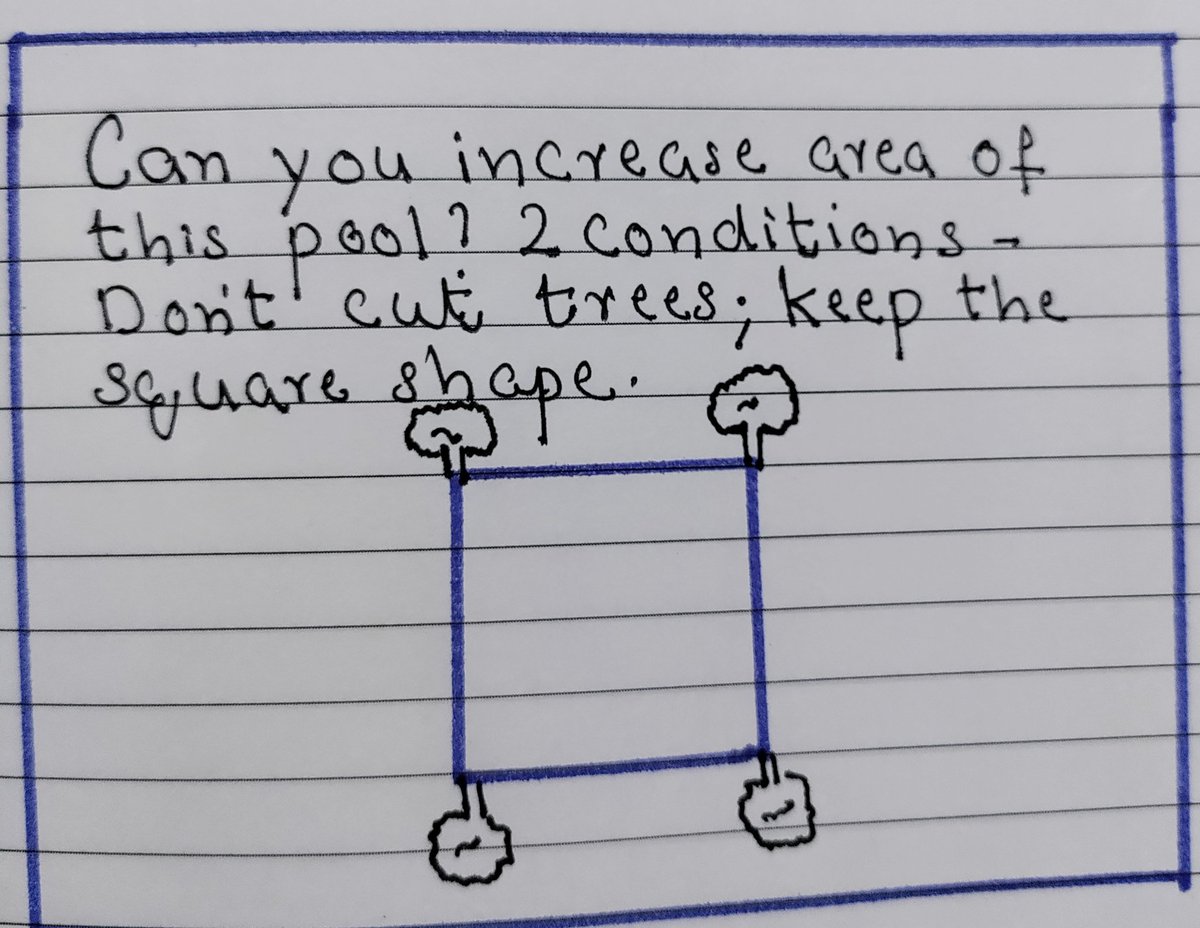 Can you increase area of
this pool? 2 conditions -
Don't cut trees; keep the
square shape.